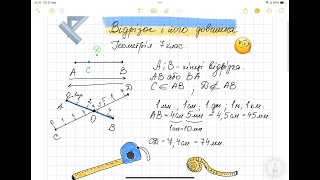 Відрізок і його довжина.
Геометрія 7 клас.
C
A B
D
A і B - кінці відрізка
AB або BA
C ∈ AB ; D ∉ AB.
1 мм, 1 см, 1 дм, 1 м, 1 км.
AB = 4 см 5 мм = 4,5 см = 45 мм
1 см = 10 мм
CD = 7,4 см = 74 мм.
A D
O
C B